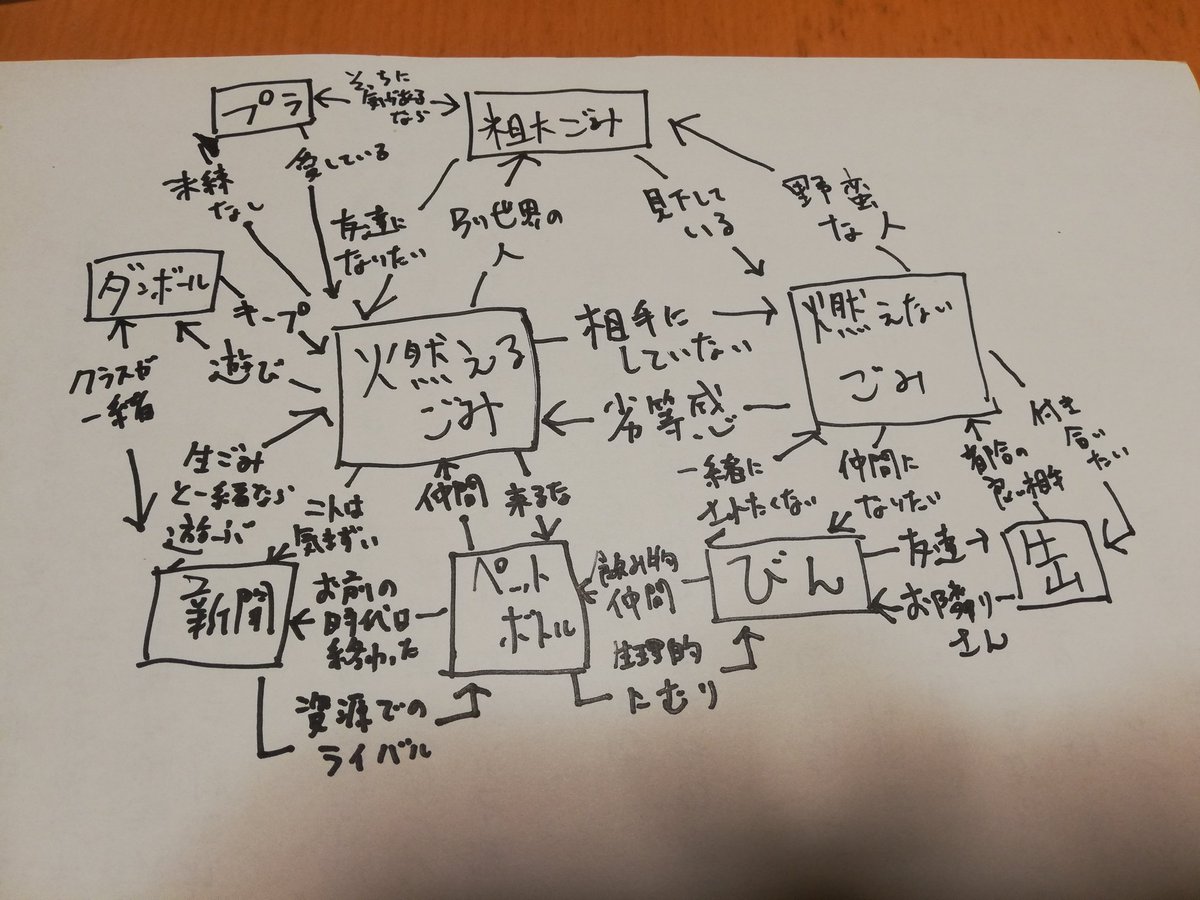 プラ
そっちに
気があるなら
粗大ごみ
未練
なし
愛している
友達に
なりたい
別世界の
人
見下して
いる
野蛮
な人
ダンボール
キープ
遊び
クラスが
一緒
燃える
ごみ
相手に
していない
劣等感
燃えない
ごみ
付き
合い
たい
生ごみ
と一緒なら
遊ぶ
二人は
気まずい
仲間
来るな
一緒に
されたくない
仲間に
なりたい
都合の
悪い相手
新聞
お前の
時代は
終わった
ペット
ボトル
飲み物
仲間
びん
友達
お隣り
さん
缶
資源での
ライバル
生理的
にむり